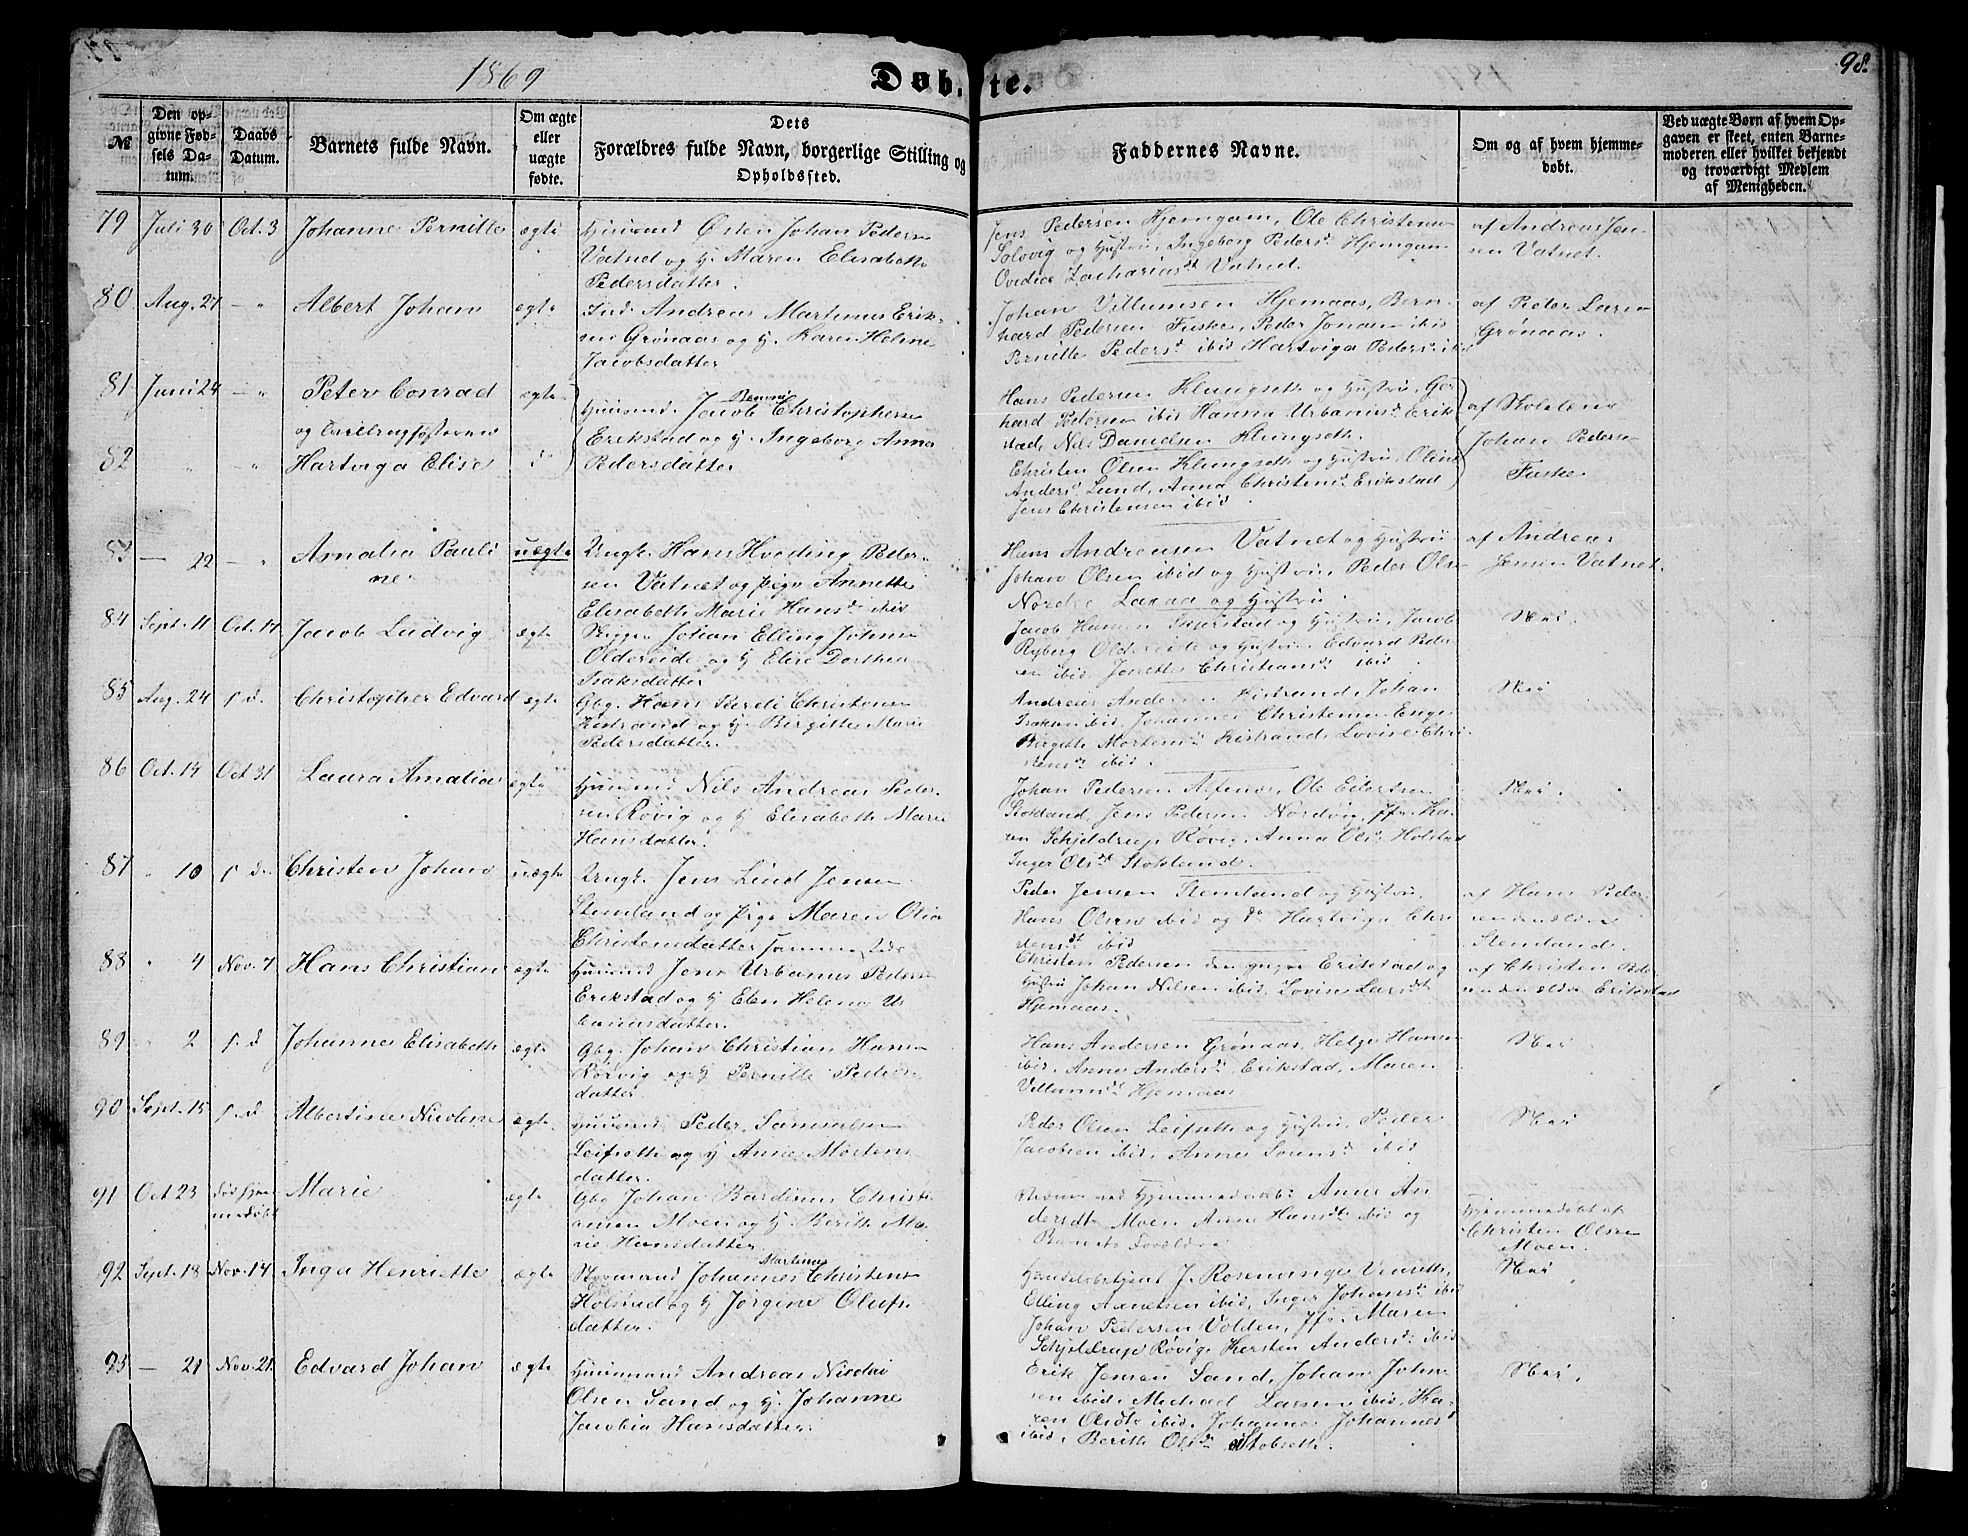 1869
Døbte.
98.
№
Den opgivne Fødsels Datum.
Daabs Datum.
Barnets fulde Navn.
Om ægte eller uægte fødte.
Dets Forældres fulde Navn, borgerlige Stilling og Opholdssted.
Faddernes Navne.
Om og af hvem hjemmedøbt.
Ved uægte Børn af hvem Opgaven er skeet, enten Barnemoderen eller hvilket bekjendt og troværdigt Medlem af Menigheden.
79 Juli 30 Oct. 3 Johanne Pernille ægte
Huusmd Østen Johan Peders
Vatnet og H. Maren Elisabeth
Pedersdatter.
Jens Pedersen Hjemgam, Ole Christens
Solvig og Hustru, Ingeborg Pedersd. Hjemgam
Ovidie Zachariasdt Vatnet.
af Andreas Jen-
sen Vatnet.
80 Aug. 27 — " Albert Johan ægte
Ind. Andreas Martinus Erik-
sen Grønaas og H. Karen Helene
Jacobsdatter
Johan Villumsen Hjemaas, Bern-
hard Pedersen Fuske, Peder Jonsen ibid
Pernille Pedersd. ibid Hartviga Peders. ibid
af Peder Larsen
Grønaas.
81 Juni 24 — " Peter Conrad ægte
og Tvillingsøsteren
82 " — " Hartviga Elise do
Huusmd. Jacob Benoni Christophersen
Erikstad og H. Ingeborg Anna
Pedersdatter
Hans Pedersen Klungseth og Hustru, Ger-
hard Pedersen ibid Hanna Urbanusd. Erik-
stad, Nils Danielsen Klungseth.
Christen Olsen Klungseth og Hustru, Oline
Andersd. Lund, Anna Christensd. Erikstad
Jens Christensen ibid
af Skolelærer
Johan Pedersen
Fuske
83 — 22 — " Amalia Pauli
ne. uægte
Ungk. Hans Hveding Peder-
sen Vatnet og Pige Annette
Elisabeth Marie Hansd. ibid
Hans Andreasen Vatnet og Hustru
Johan Olsen ibid og Hustru, Peder Olsen
Nordre Laxaa og Hustru.
af Andreas
Jensen Vatnet.
84 Sept. 11 Oct. 17 Jacob Ludvig ægte
Johan Elling Johnsen
Oldereide og H Elise Dorthea
Isaksdatter
Jacob Hansen og Hustru, Jacob
Ryberg Oldereide og Hustru, Edvard Peder-
sen ibid, Jonetta Christiansd. ibid
Nei.
85 Aug. 24 s. d. Christopher Edvard ægte
Gbg. Hans Pareli Christensen
Kistrand og H. Birgitte Marie
Pedersdatter.
Andreas Andersen Kistrand, Johan
Isaksen ibid, Johannes Christensen Enge
Birgitte Mortensd. Kistrand, Lovise Chri-
stensd. ibid.
Nei
86 Oct. 14 Oct 31 Laura Amalia ægte
Huusmd Nils Andreas Peder-
sen Røvig og H Elisabeth Marie
Hansdatter.
Johan Pedersen Alfenes, Ole Eilertsen
Stokland, Jens Pedersen Nordvig, Jfr. Ka-
ren Schjeldrup Røvig, Anna Olsd. Holstad
Inger Olsdt Stokland.
Nei.
87 " 10 s. d. Christen Johan uægte
Ungk. Jens Lind Jensen
Stemland og Pige Maren Olia
Christensdatter samme sted
Peder Jensen Stemland og Hustru,
Hans Olsen ibid og do Hartviga Chri-
stensdt ibid
af Hans Peder-
sen den ældre
Stemland.
88 " 4 Nov. 7 Hans Christian ægte
Huusmd Jens Urbanus Pedersen
Erikstad og H Elen Helena Ur-
banusdatter.
Christen Pedersen den yngre Erikstad og
Hustru Johan Nilsen ibid, Lovise Larsdt
Hjemaas.
af Christen Peder-
sen den ældre Erikstad
89 " 2 s. d Johannes Elisabeth ægte
Gbg. Johan Christian Hansen
Rørvig og H Pernille Peders-
datter.
Hans Andersen Grønaas, Helge Hansen
ibid, Anne Andersd. Erikstad, Maren
Villumsdt. Hjemaas
Nei
90 Sept. 15 s. d Albertine Nicoline ægte
Huusmd Peder Samuelsen
Leifseth og H Anne Mortens
datter.
Peder Olsen Leifseth og Hustru, Peder
Jacobsen ibid, Anne Sørensd. ibid
Nei
91 Oct 23 død hjem-
medøbt Marie ægte
Gbg Johan Bardinus Christi-
ansen Moen og H Berith Ma-
rie Hansdatter
ved Hjemmedaaben Anne An-
dersdt. Moen Anne Hansdt ibid og
Barnets Forældre
Hjemmedøbt af
Christen Olsen
Moen.
92 Sept. 18 Nov. 14 Inga Henriette ægte
Styrmand Johannes Martinus Christensen
Holstad og H Jørgine Olufs
datter.
Handelsbetjent J. Rosenvinge Venseth,
Elling Axnetsen ibid, Inger Johansd. ibid
Johan Pedersen Volden, Jfr. Maren
Schjeldrup Røvig, Kersten Andersd. ibid
Nei
93 — 21 Nov. 21 Edvard Johan ægte
Huusmand Andreas Nicolai
Olsen Sand og H. Johanne
Jacobia Hansdatter.
Erik Jensen Sand, Johan John-
sen ibid, Michael Larsen ibid, Ka-
ren Olsdt ibid, Johanne Johannesd
ibid, Berith Olsdt Stobseth.
Nei.